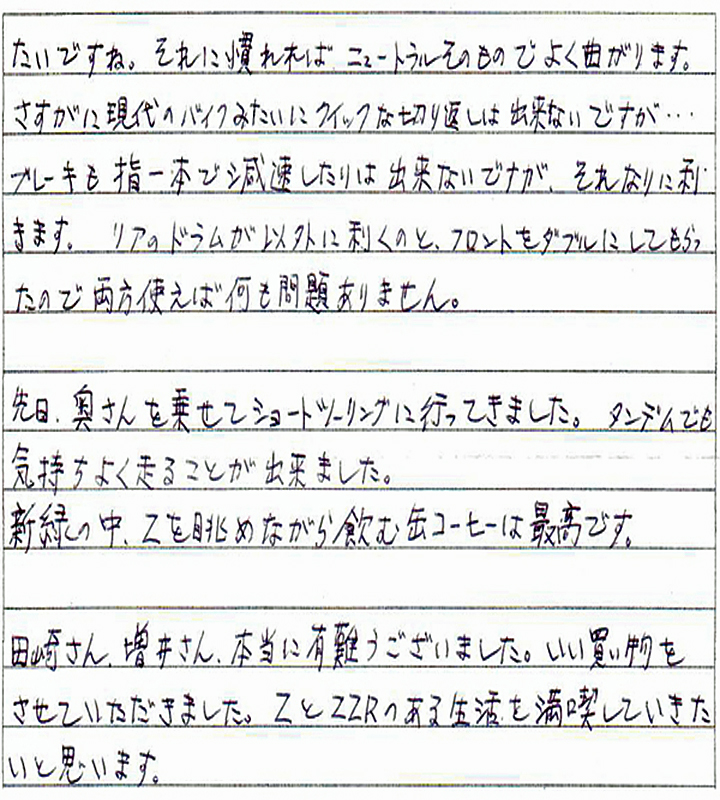 たいですね。それに慣れれば ニュートラルそのものでよく曲がります。
さすがに現代のバイクみたいにクイックな切り返しは出来ないですが…
ブレーキも指一本で減速したりは出来ないですが、それなりに利
きます。 リアのドラムが以外に利くのと、フロントをダブルにしてもらっ
たので両方使えば何も問題ありません。
先日、奥さんを乗せてショートツーリングに行ってきました。 タンデムでも
気持ちよく走ることが出来ました。
新緑の中、Zを眺めながら飲む缶コーヒーは最高です。
田崎さん、増井さん、本当に有難うございました。いい買い物を
させていただきました。ZとZZRのある生活を満喫していきた
いと思います。